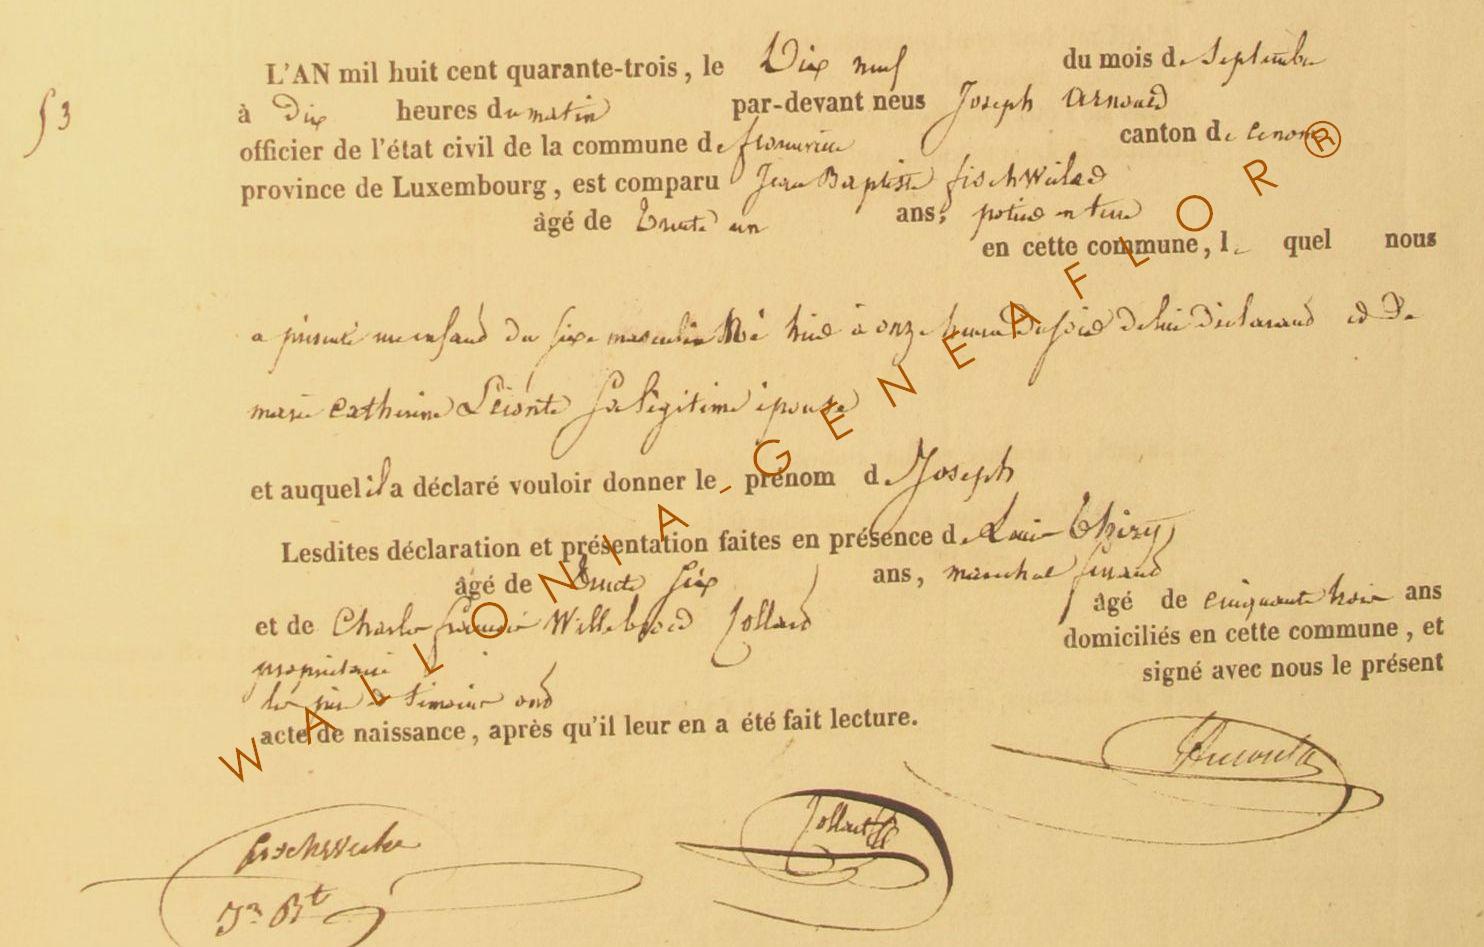 L'AN mil huit cent quarante-trois, le Dix neuf du mois de Septembre
53
à Dix heures du matin par-devant nous Joseph Arnould
officier de l'état civil de la commune de canton de
province de Luxembourg, est comparu Jean Baptiste
âgé de trente un ans, potier en terre
en cette commune, le quel nous
a présenté un enfant du sexe masculin Né hier à onze heures du soir de lui déclarant et de
marie catherine Léonte sa légitime épouse
et auquel il a déclaré vouloir donner le prénom de Joseph
Lesdites déclaration et présentation faites en présence de Louis Thiry
âgé de trente six ans, maréchal ferrant
et de Charles françois Willebrord Collard âgé de cinquante trois ans
propriétaire domiciliés en cette commune, et
les père et témoins ont signé avec nous le présent
acte de naissance, après qu'il leur en a été fait lecture.
Jn Bt
WALLONIA-GENEAFLOR®